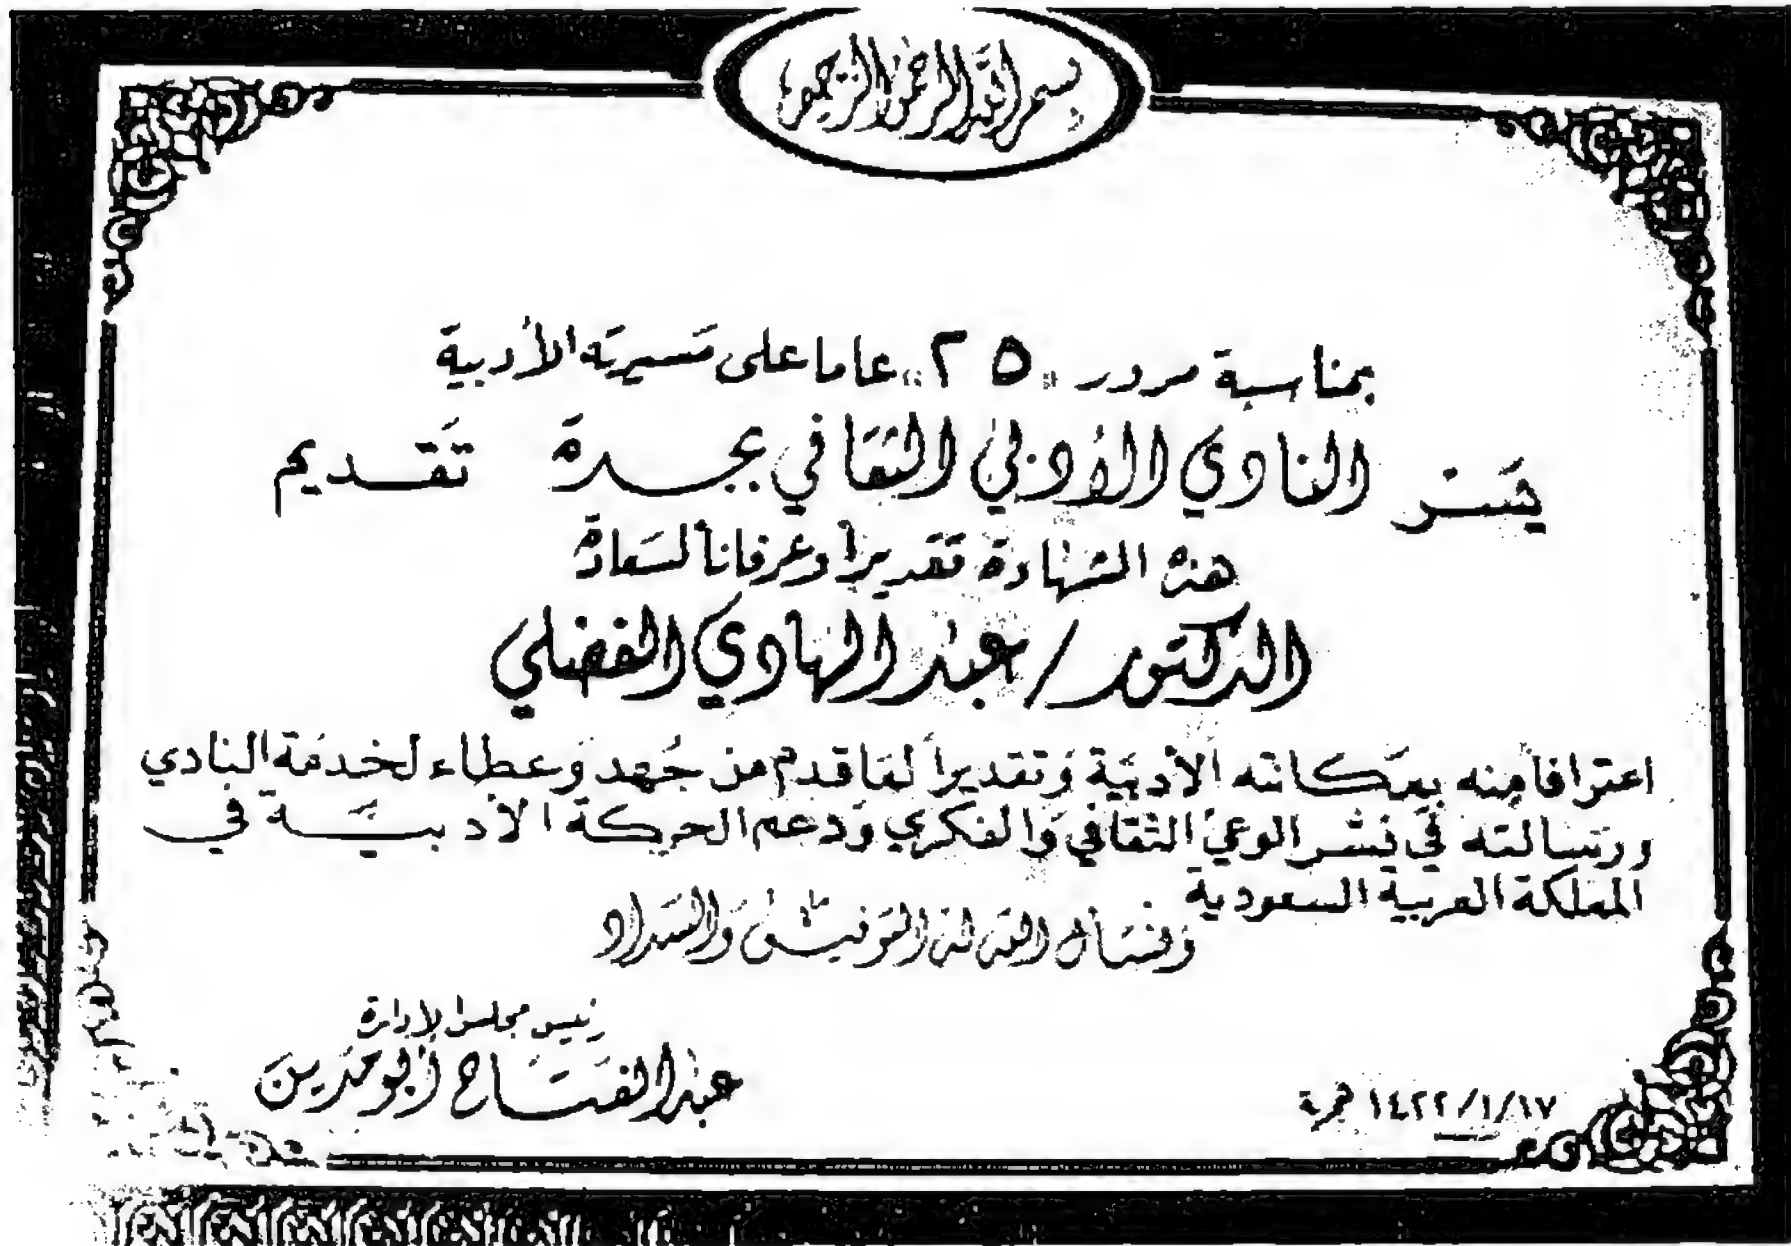 بسم الله الرحمن الرحيم
بمناسبة مرور "٢٥" عاما على مسيرته الأدبية
يسر النادي الأدبي الثقافي بجدة تقديم
هذه الشهادة تقديراً وعرفاناً لسعادة
الدكتور / عبد الهادي الفضلي
اعترافا منه بمكانته الأدبية وتقديراً لما قدم من جهد وعطاء لخدمة النادي
ورسالته في نشر الوعي الثقافي والفكري ودعم الحركة الأدبية في
المملكة العربية السعودية
ونسأل الله له التوفيق والسداد
رئيس مجلس الإدارة
عبد الفتاح أبو مدين
١٤٢٢/١/١٧ هجرية